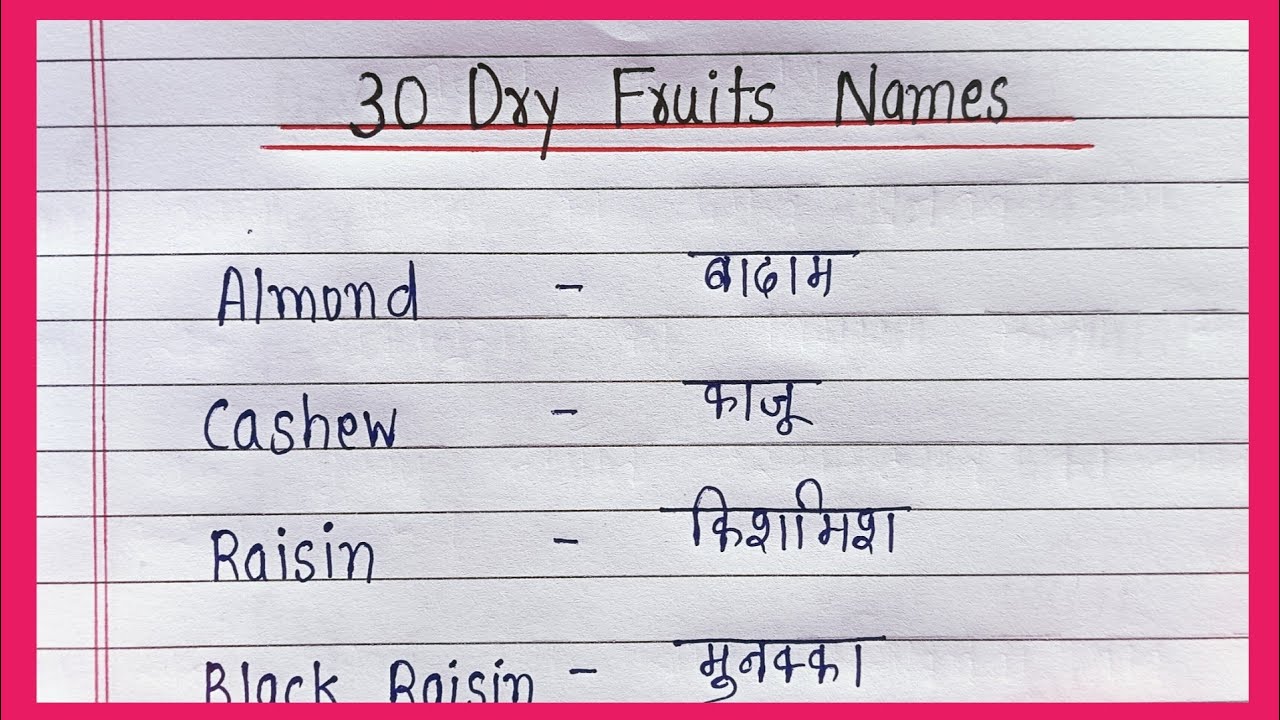 30 Dry Fruits Names
Almond - बादाम
Cashew - काजू
Raisin - किशमिश
Black Raisin - मुनक्का